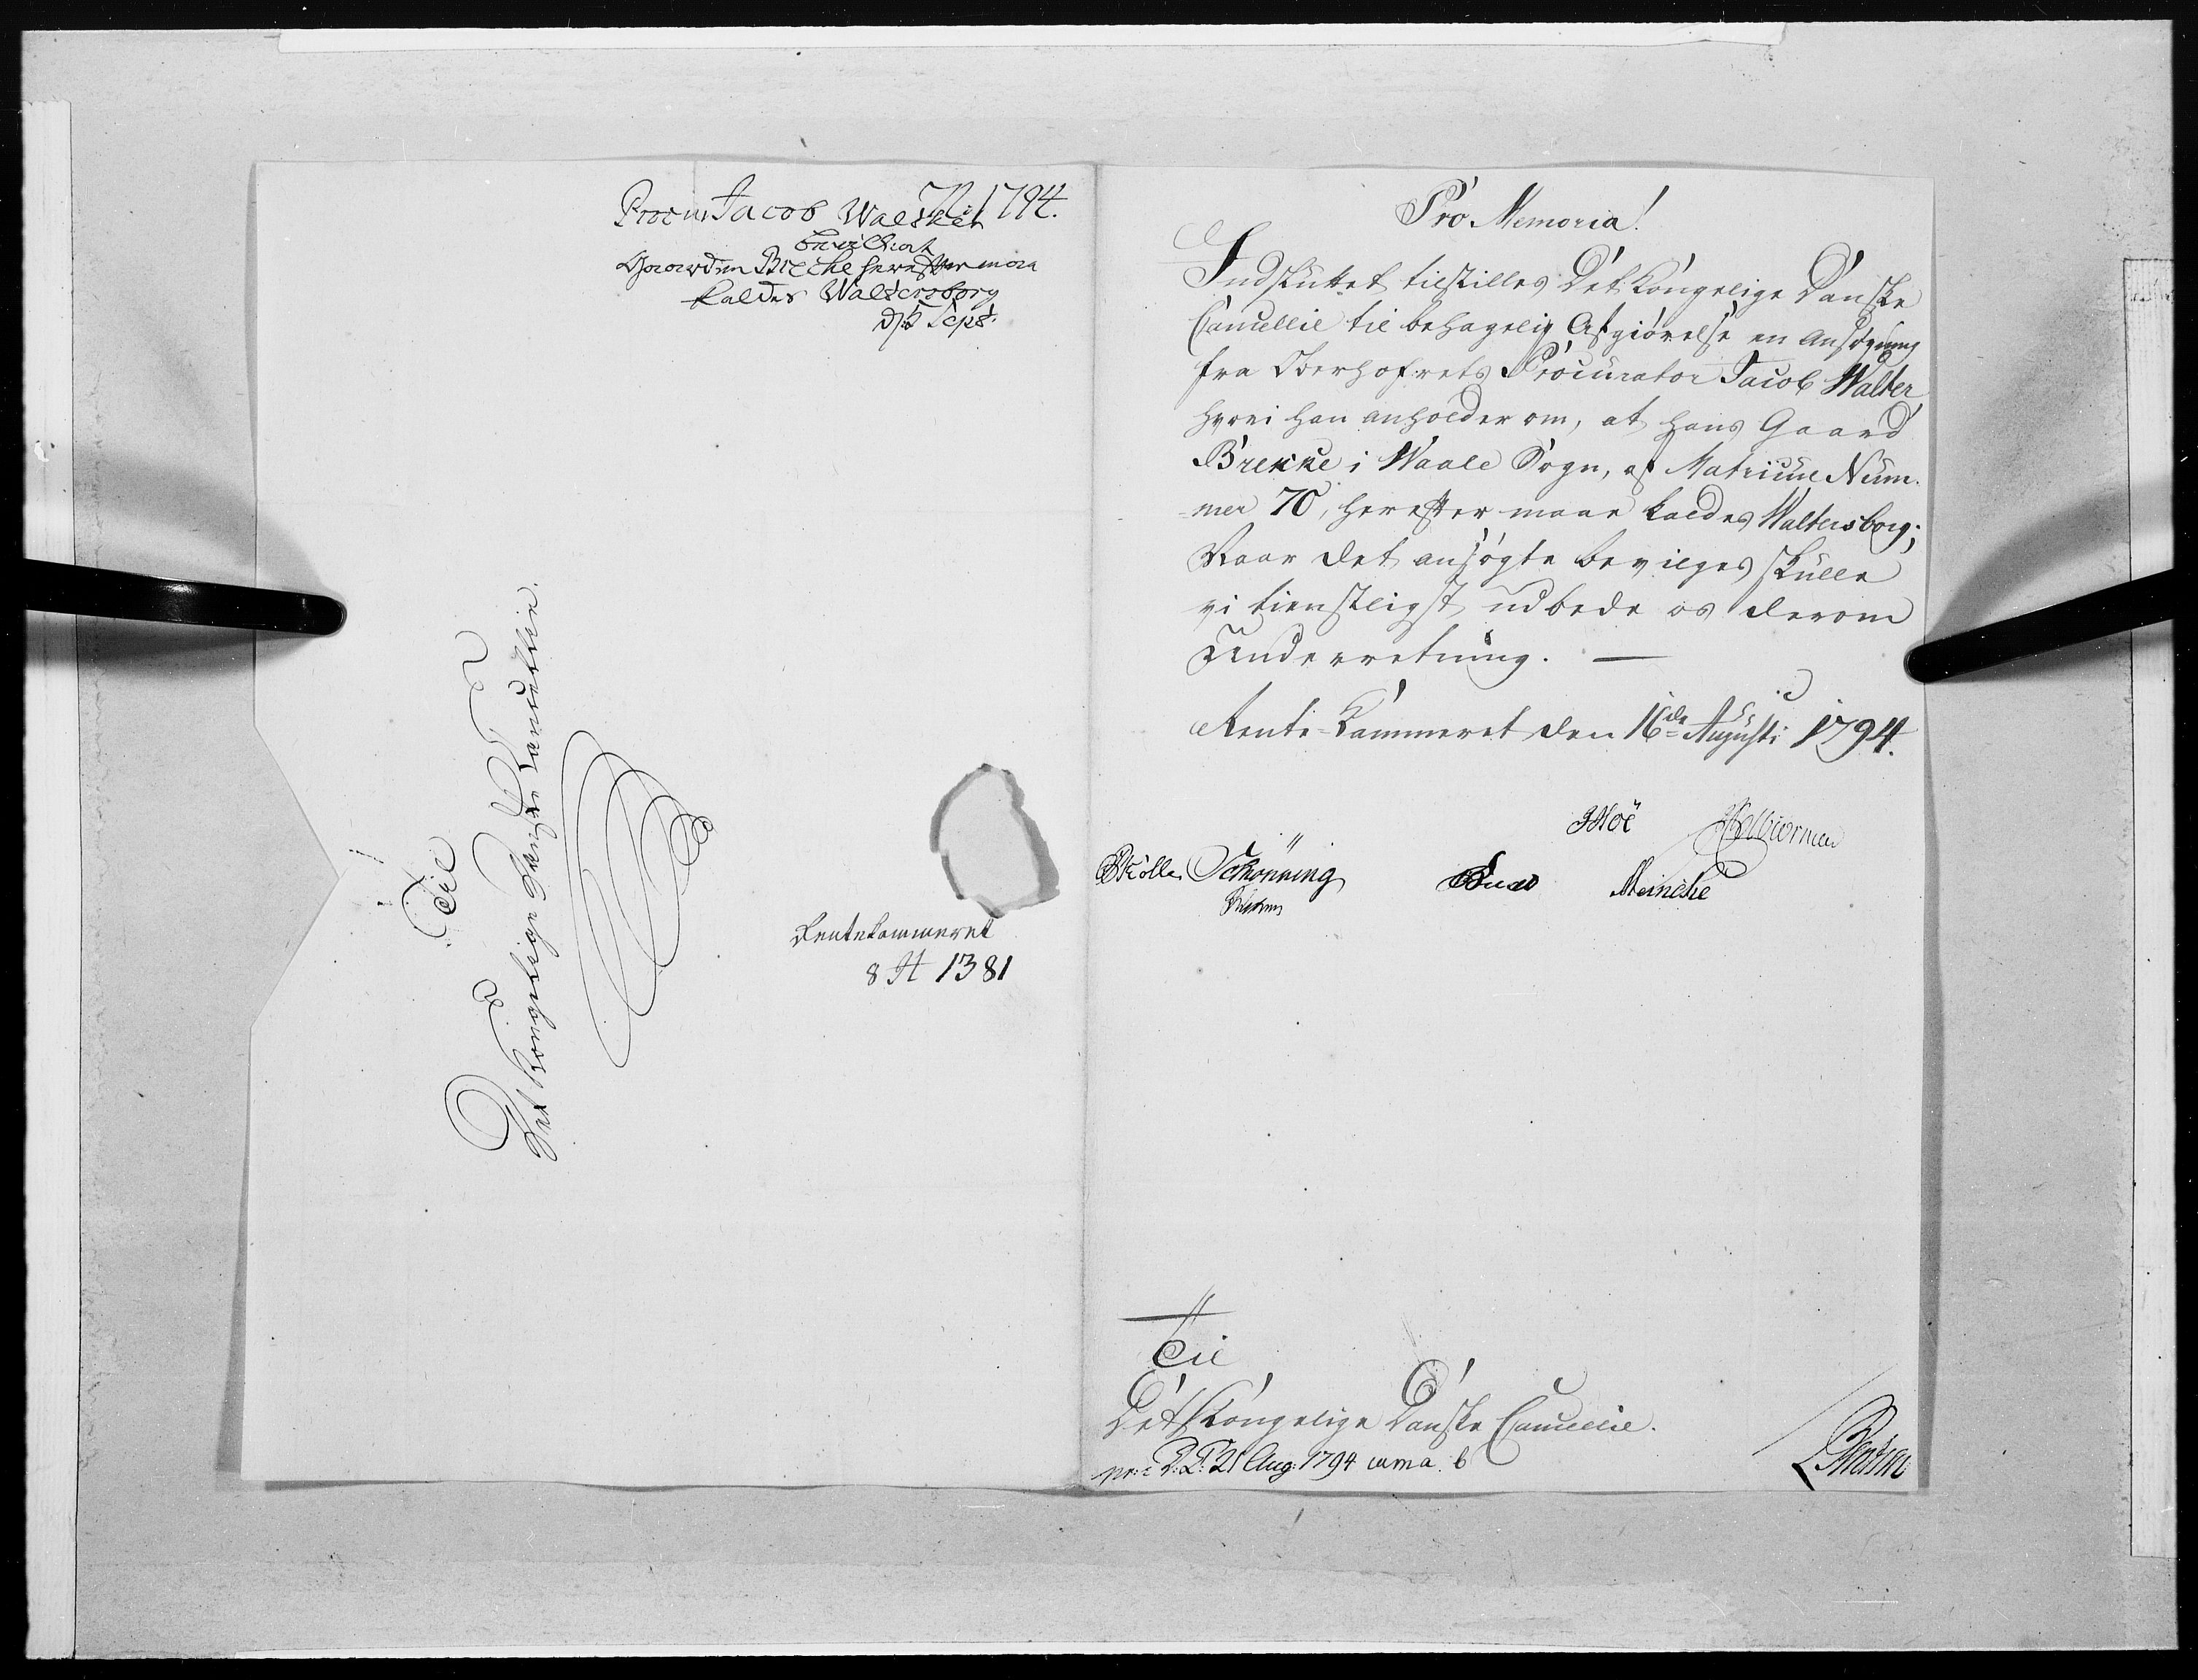 N: 1794.
Procur Jacob Walther
bevilliget
Gaarden Brecke herefter maa
kaldes Waltersborg
d: 5 Sept:
Til
Det Kongelige Danske Cancellie.
Rentekammeret
8 H 1381
Pro Memoria!
Indsluttet tilstilles Det Kongelige Danske
Cancellie til behagelig Afgiørelse en Ansøgning
fra Oberhofrets Procurator Jacob Walter
hvori han anholder om, at hans Gaard
Brekke i Waale Sogn, af Matricul Num-
mer 70, herefter maae kaldes Waltersborg;
Naar det ansøgte bevilges skulle
vi tienstligst udbede os derom
Underretning. —
Rente-Kammeret den 16de Augusti 1794.
Schønning
Meinche
Til
Det Kongelige Danske Cancellie.
21 Aug: 1794